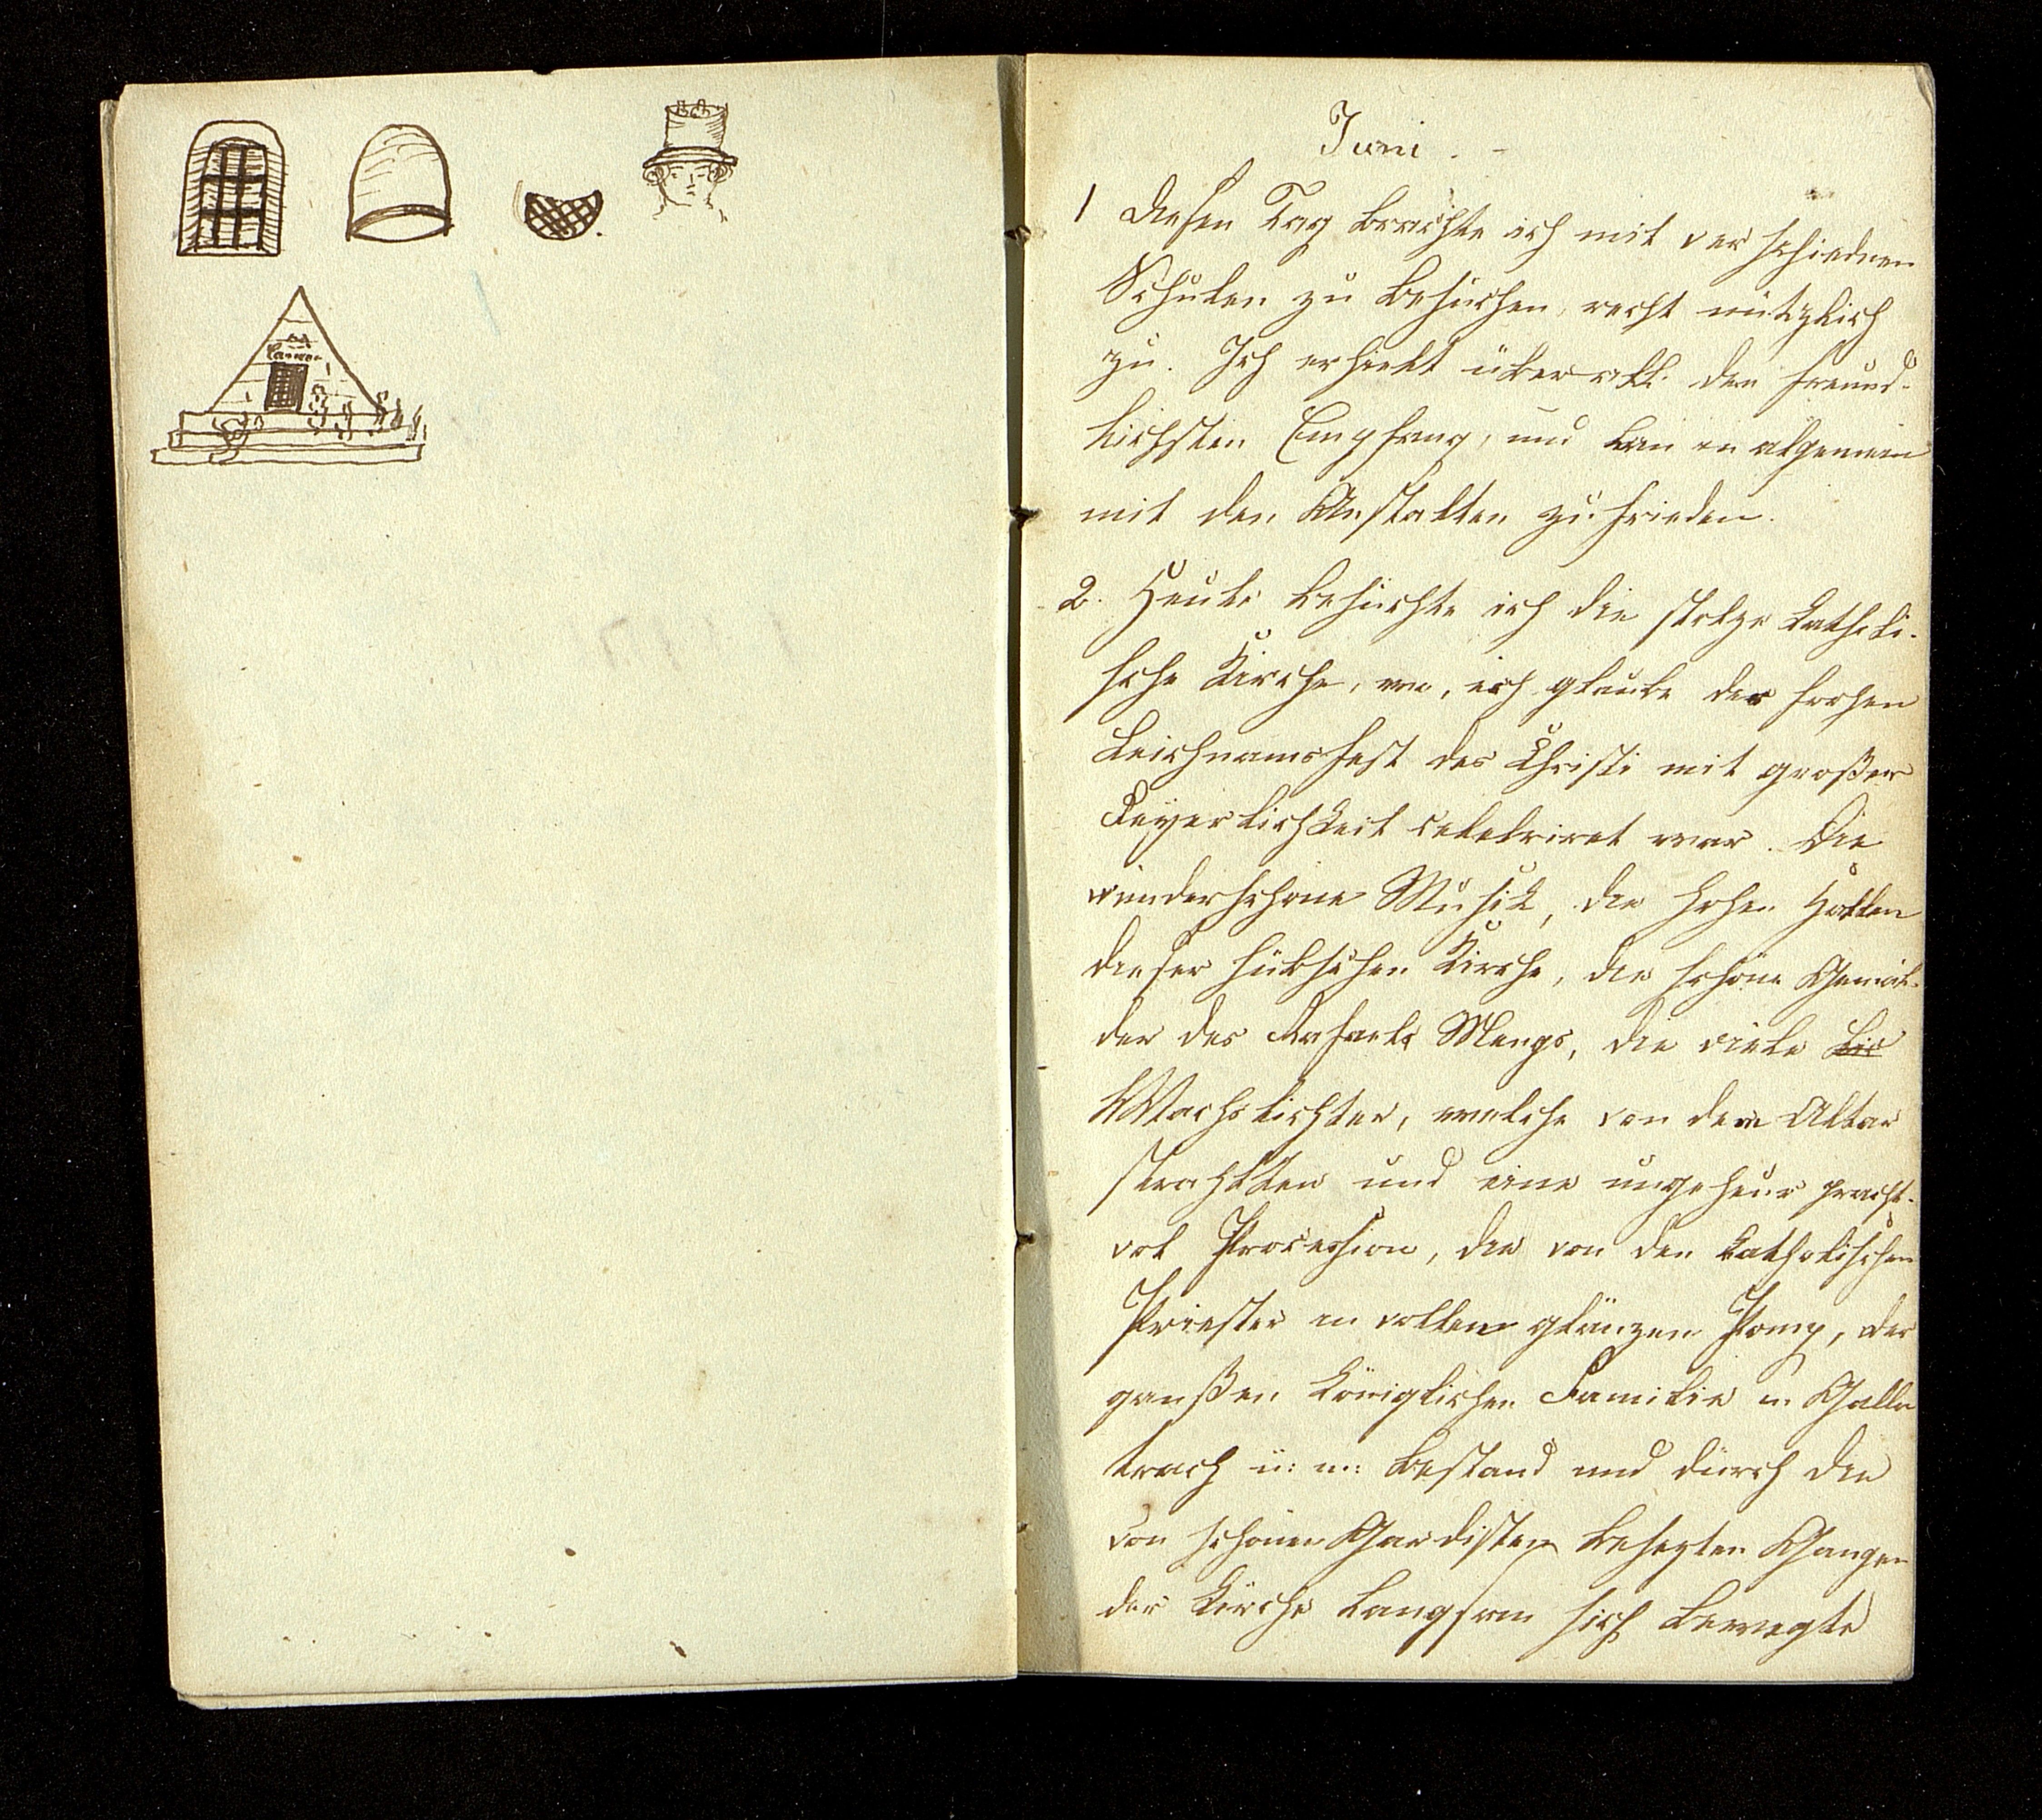 Canova
Juni. -
1 Diesen Tag brachte ich mit verschiednen
Schulen zu besuchen, recht nützlich
zu. Ich erhielt überall den freund-
lichsten Empfang, und bin en algemein
mit den Anstalten zufrieden.
2. Heute besuchte ich die stolze katholi-
sche Kirche, wo, ich glaube der frohen
Leichnamsfest des Christi mit großer
Feyerlichkeit celebriret war. Die
wunderschöne Musik, die hohen Hallen
dieser hübschen Kirche, die schöne Gemäl-
der des Rafaels Mengs, die viele Lic
Wachslichter, welche von dem Altar
strahlten und eine ungeheur pracht-
vol Procession, die von den katholischen
Priester in vollem glänzen Pomp, der
ganßen königlichen Familie in Galla
trach u: m: bestand und durch die
von schönen Gardisten besezten Gangen
der Kirche langsam sich bewegte